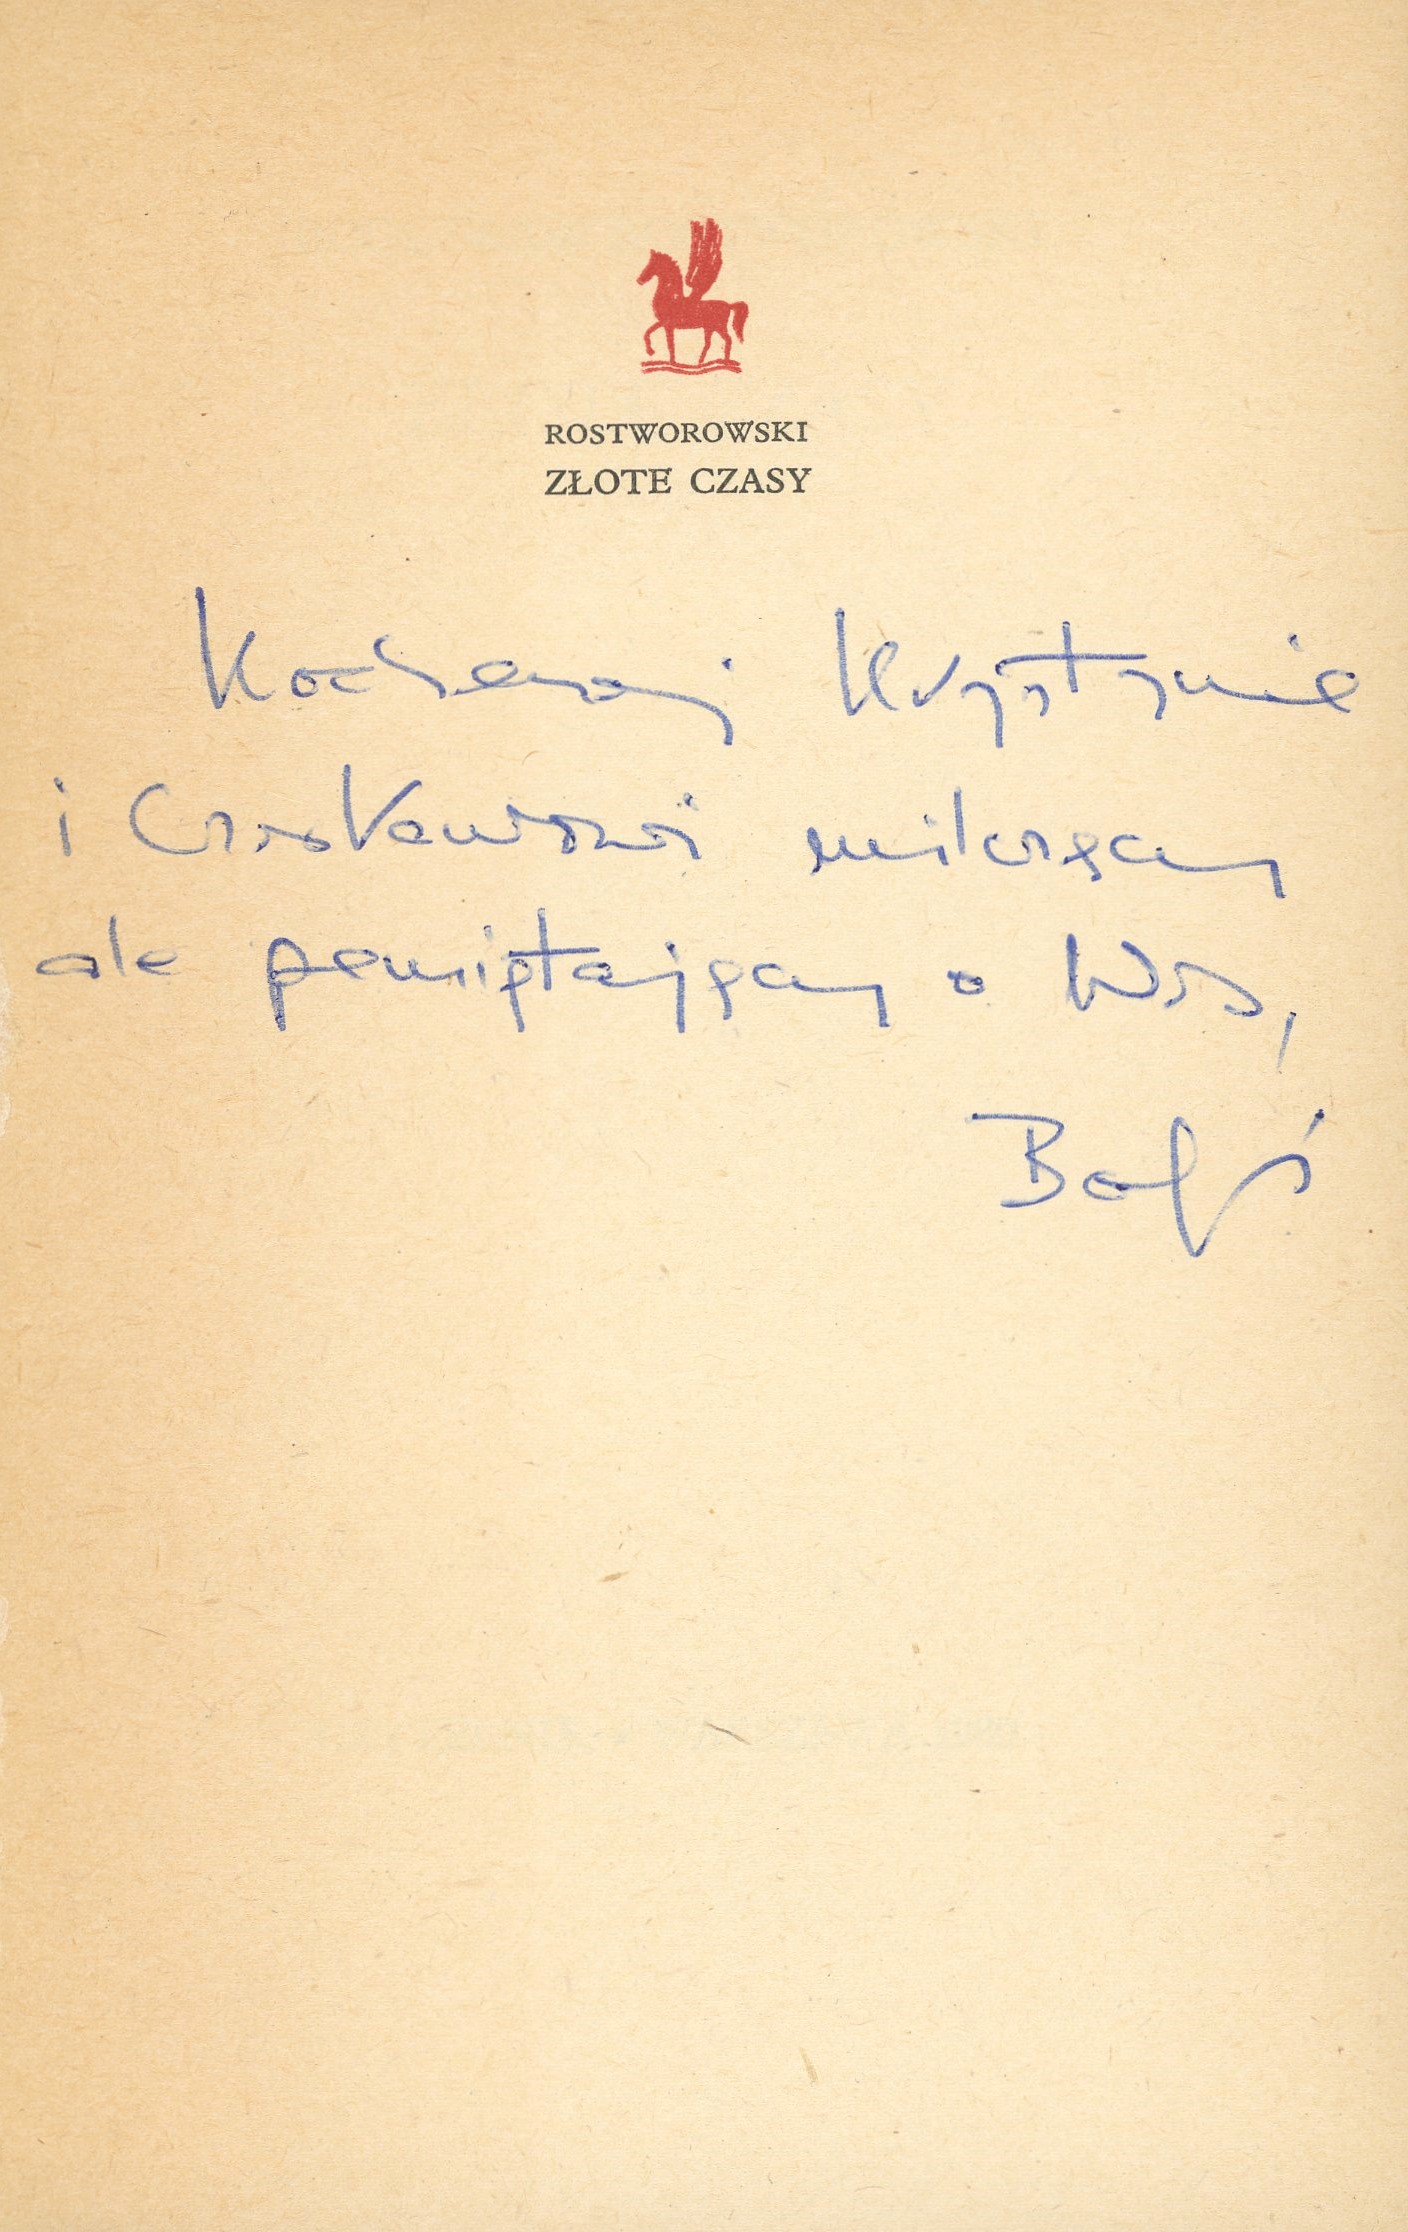 ROSTWOROWSKI
ZŁOTE CZASY
Kochanej Krystynie
i Czesławowi milczący
ale pamiętający o Was,